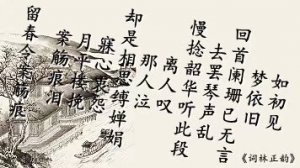 如初见
梦依旧
回首阑珊已无言
去罢琴声乱
慢捻韶华听此段
离人叹
那人泣
却是相思缚婵娟
寐心丧怨
月平楼挽
案觞痕泪
留春令案觞痕
《词林正韵》